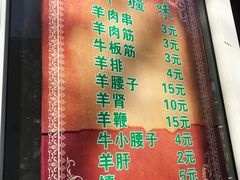 疆味
羊肉串 3元
羊肉筋 3元
牛板筋 3元
羊排 4元
羊腰子 15元
羊肾 10元
羊鞭 15元
牛小腰子 4元
羊肝 2元
5元